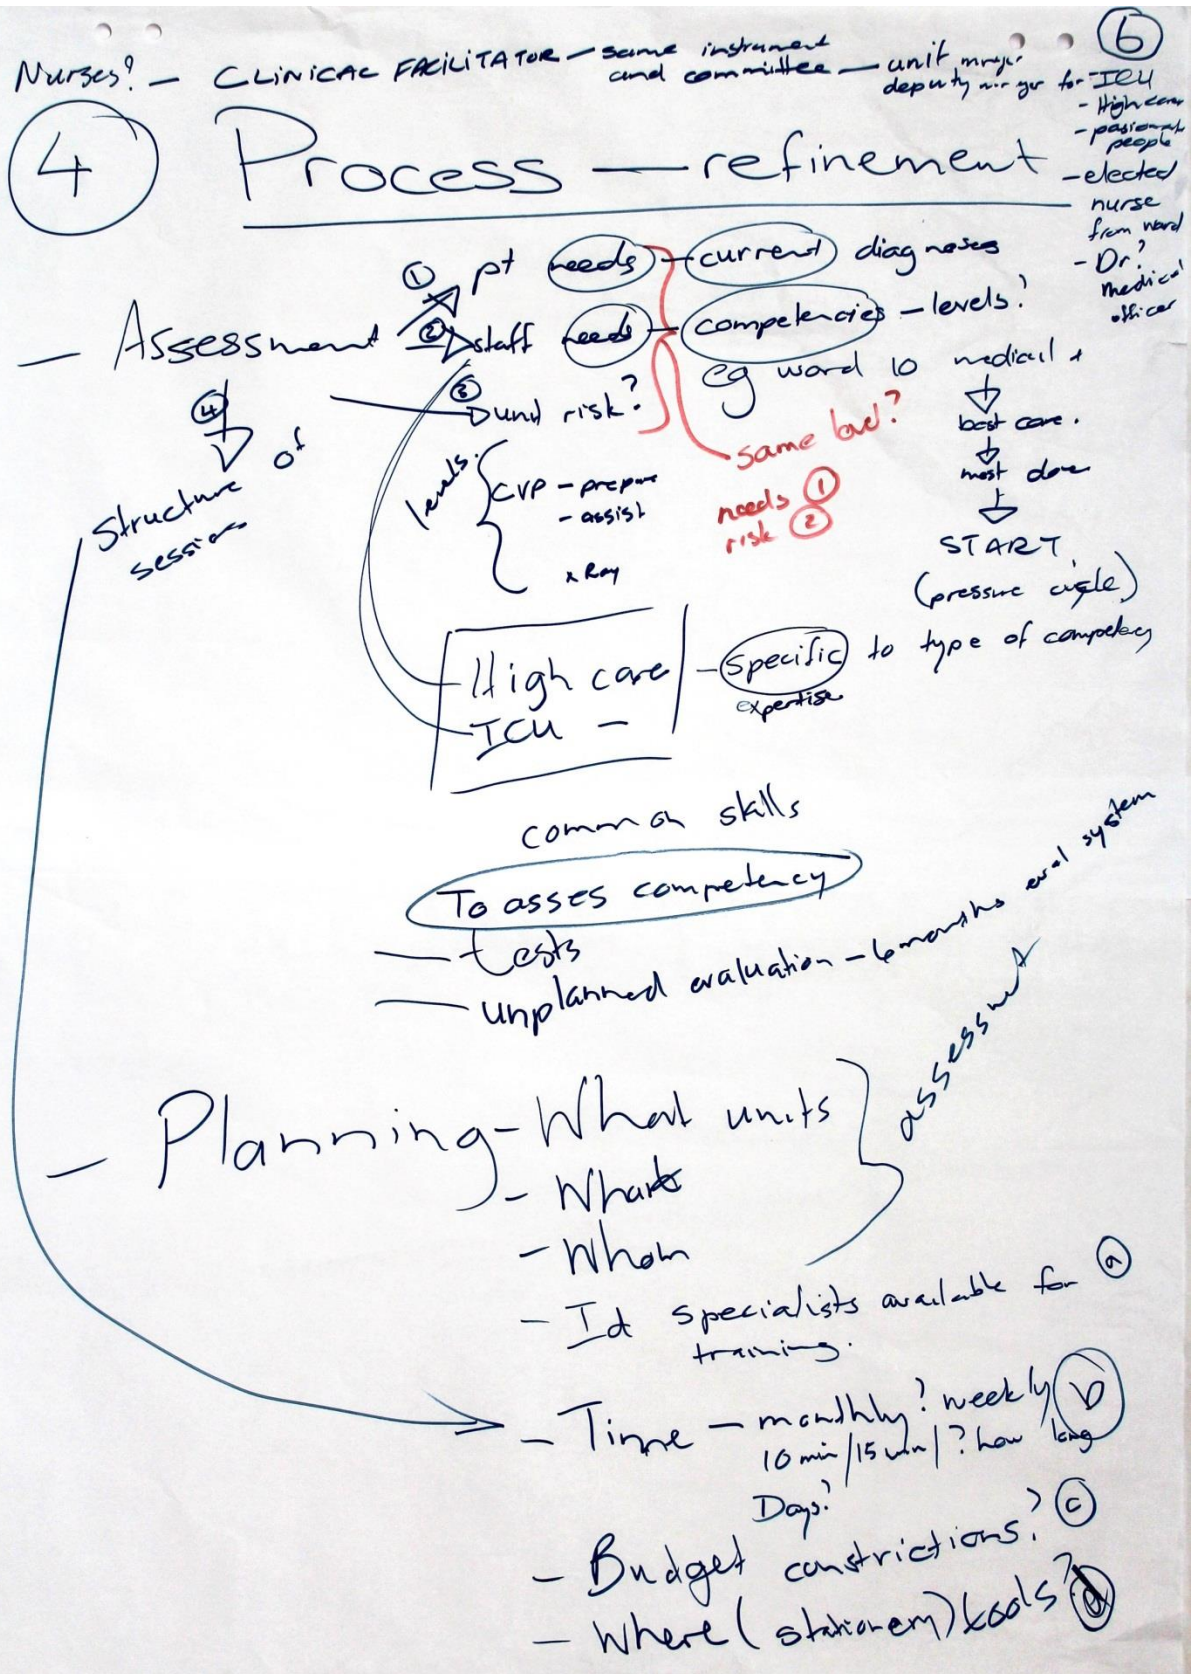 6
Nurses? - CLINICAL FACILITATOR - same instrument
and committee - unit manager
deputy manager for - ICU
- High care
- pasionat people
- elected
nurse
from ward
- Dr?
medical
officer
4 Process - refinement
- Assessment
① pt needs - current diagnoses
② staff needs - competencies - levels?
eg ward 10 medical +
③ unit risk?
best care.
most done
START
(pressure cycle)
same level?
needs ①
risk ②
levels.
CVP - prepare
- assist
x Ray
④ Structure of
session
High care - specific to type of competency
expertise
ICU -
common skills
To asses competency
- tests
- unplanned evaluation - 6 months eval system
- Planning - What units
- What
- Whom
assessment
- Id specialists available for ⓐ
training.
- Time - monthly? weekly ⓑ
10 min/15 min/? how long
Days?
- Budget constrictions? ⓒ
- Where (stationery) tools? ⓓ